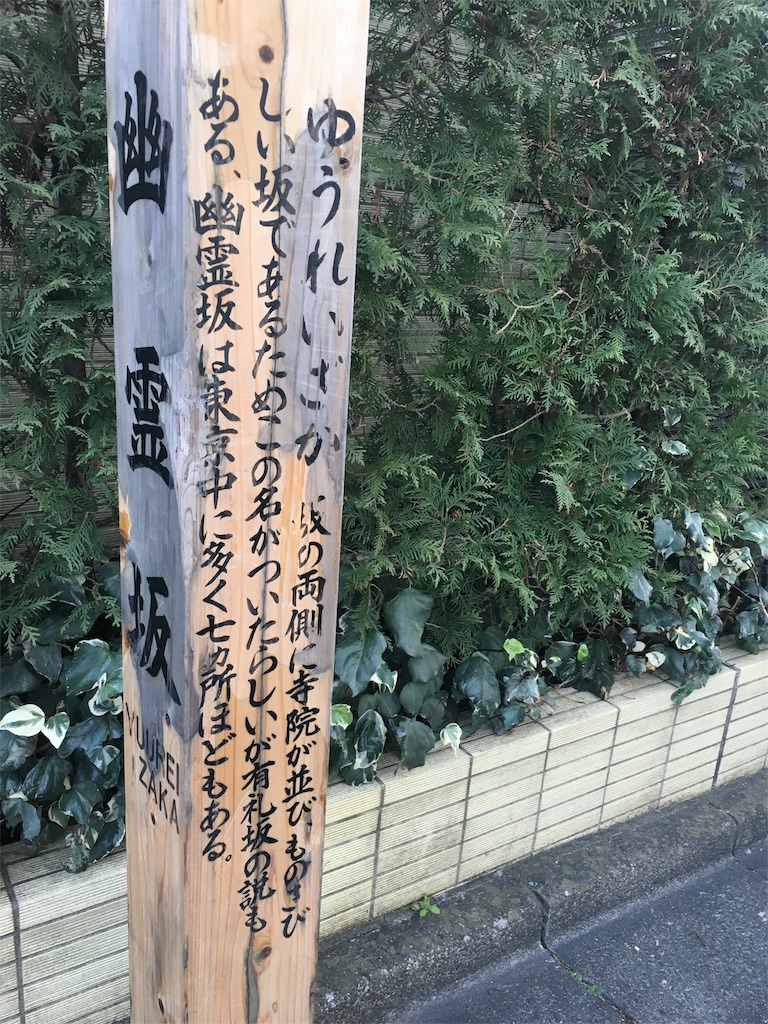 幽霊坂
YUUREI
ZAKA
ゆうれいざか 坂の両側に寺院が並び、ものさび
しい坂であるためこの名がついたらしいが有礼坂の説も
ある、幽霊坂は東京中に多く七ヵ所ほどもある。